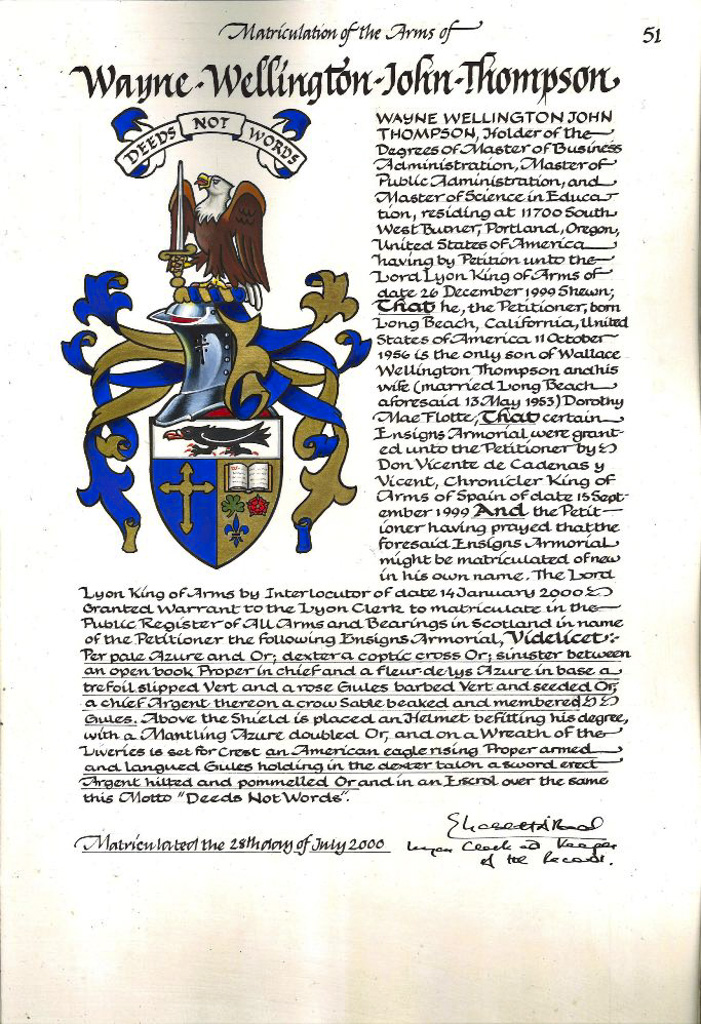 Matriculation of the Arms of
51
Wayne-Wellington-John-Thompson
DEEDS NOT WORDS
WAYNE WELLINGTON JOHN
THOMPSON, Holder of the
Degrees of Master of Business
Administration, Master of
Public Administration, and
Master of Science in Educa-
tion, residing at 11700 South
West Butner, Portland, Oregon,
United States of America
having by Petition unto the
Lord Lyon King of Arms of
date 26 December 1999 Shewn;
That he, the Petitioner, born
Long Beach, California, United
States of America 11 October
1956 is the only son of Wallace
Wellington Thompson and his
wife (married Long Beach
aforesaid 13 May 1953) Dorothy
Mae Flotte; That certain
Ensigns Armorial were grant-
ed unto the Petitioner by
Don Vicente de Cadenas y
Vicent, Chronicler King of
Arms of Spain of date 15 Sept-
ember 1999 And the Petit-
ioner having prayed that the
foresaid Ensigns Armorial
might be matriculated of new
in his own name. The Lord
Lyon King of Arms by Interlocutor of date 14 January 2000
Granted Warrant to the Lyon Clerk to matriculate in the
Public Register of All Arms and Bearings in Scotland in name
of the Petitioner the following Ensigns Armorial, Videlicet:-
Per pale Azure and Or; dexter a coptic cross Or; sinister between
an open book Proper in chief and a fleur-de-lys Azure in base a
trefoil slipped Vert and a rose Gules barbed Vert and seeded Or,
a chief Argent thereon a crow Sable beaked and membered
Gules. Above the Shield is placed an Helmet befitting his degree,
with a Mantling Azure doubled Or, and on a Wreath of the
Liveries is set for Crest an American eagle rising Proper armed
and langued Gules holding in the dexter talon a sword erect
Argent hilted and pommelled Or and in an Escrol over the same
this Motto "Deeds Not Words".
Matriculated the 28th day of July 2000
Lyon Clerk and Keeper
of the Records.